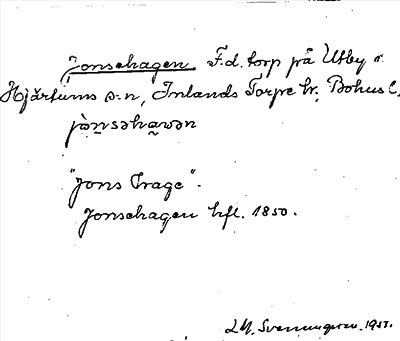 Jonsehagen F.d. torp på Utby i
Hjärtums s:n, Inlands Torpe hr, Bohus l.
jònsəhaɡən
"Jons hage".
Jonsehagen hfl. 1850.
Svenungsson. 19